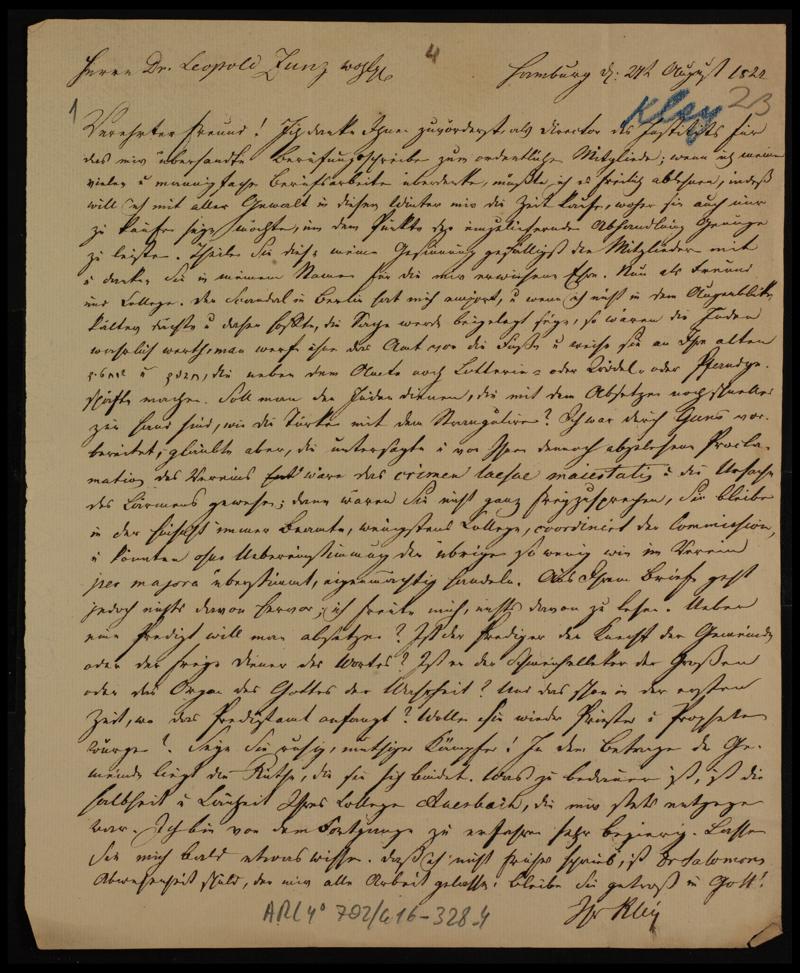 4
Herrn Dr. Leopold Zunz wohlg. Hamburg d: 27t August 1822
1 Kley 23
Verehrter Freund! Ich danke Ihnen zuvörderst als Director des Instituts für
das mir übersandte Berufungsschreiben zum ordentlichen Mitgliede; wenn ich meine
vielen u mannigfachen Berufsarbeiten überdenke, müßte ich es freilich ablehnen, indeß
will ich mit aller Gewalt in diesem Winter mir die Zeit kaufen, woher sie auch nur
zu kaufen seyn möchte, um dem Punkte der einzuliefernden Abhandlung Genüge
zu leisten. Theilen Sie diese meine Gesinnung gefälligst den Mitgliedern mit
u danken Sie in meinem Namen für die mir erwiesene Ehre. Nun als Freund
und College. Der Scandal in Berlin hat mich empört, u wenn ich nicht in dem Augenblicke
kälter dächte u daher hoffte, die Sache werde beigelegt seyn, so wären die Juden
wahrlich werth, man werfe ihnen das Amt vor die Füße u weise sie an Ihre alten
u die neben dem Amte noch Lotterie- oder Trödel- oder Pfandge-
schäfte machen. Soll man den Juden dienen, die mit dem Absetzen noch schneller
zur Hand sind, wie die Türken mit dem Stranguliren? Ich war durch Gans vor-
bereitet, glaubte aber, die untersagte u von Ihnen dennoch abgelesene Procla-
mation des Vereins wäre das crimen laesae maiestatis u die Ursache
des Lärmens gewesen; dann wären Sie nicht ganz freizusprechen, Sie bleiben
in der Hinsicht immer Beamter, wenigstens College, coordinirt der Commission,
u könnten ohne Uebereinstimmung der übrigen so wenig wie im Verein
per majora überstimmt, eigenmächtig handeln. Aus Ihrem Briefe geht
jedoch nichts davon hervor, ich freute mich, nichts davon zu lesen. Ueber
eine Predigt will man absetzen? Ist der Prediger der Knecht der Gemeinde
oder der freie Diener des Wortes? Ist er der Speichellecker der Großen
oder das Organ des Gottes der Wahrheit? Und das schon in der ersten
Zeit, wo das Predigtamt anfängt? Wollen sie wieder Priester u Propheten
würgen? Seyn Sie ruhig, muthiger Kämpfer! In dem Betragen der Ge-
meinde liegt die Ruthe, die sie sich bindet. Was zu bedauern ist, ist die
Halbheit u Lauheit Ihres College Auerbach, die mir stets entgegen
war. Ich bin von dem Fortgange zu erfahren sehr begierig. Lassen
Sie mich bald etwas wissen. Daß ich nicht früher schrieb, ist Dr Salomons
Abwesenheit Schuld, der mir alle Arbeit gelassen. Bleiben Sie getrost in Gott!
Ihr Kley
ARC 4° 792/G16-328.4